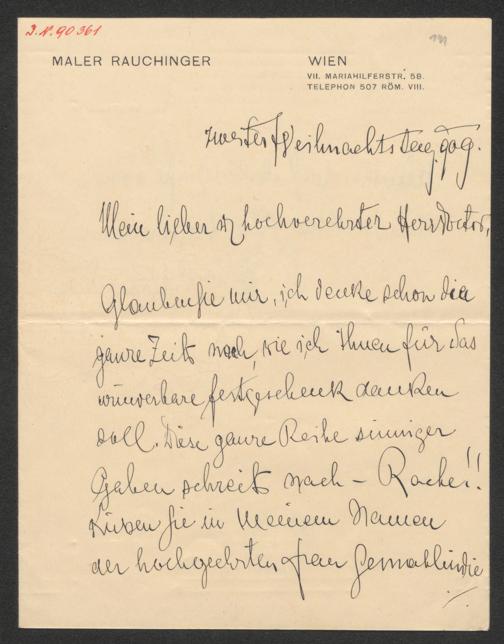 J.N. 90361
191
MALER RAUCHINGER
WIEN
VII. MARIAHILFERSTR. 58.
TELEPHON 507 RÖM. VIII.
zweiter Weihnachtstag 909.
Mein lieber u hochverehrter Herr Doctor,
Glauben Sie mir, ich denke schon die
ganze Zeit nach, wie ich Ihnen für das
wunderbare Festgeschenk danken
soll. Diese ganze Reihe sinniger
Gaben schreit nach – Rache!!
Küssen Sie in meinem Namen
der hochgeehrten Frau Gemahlin die
./.